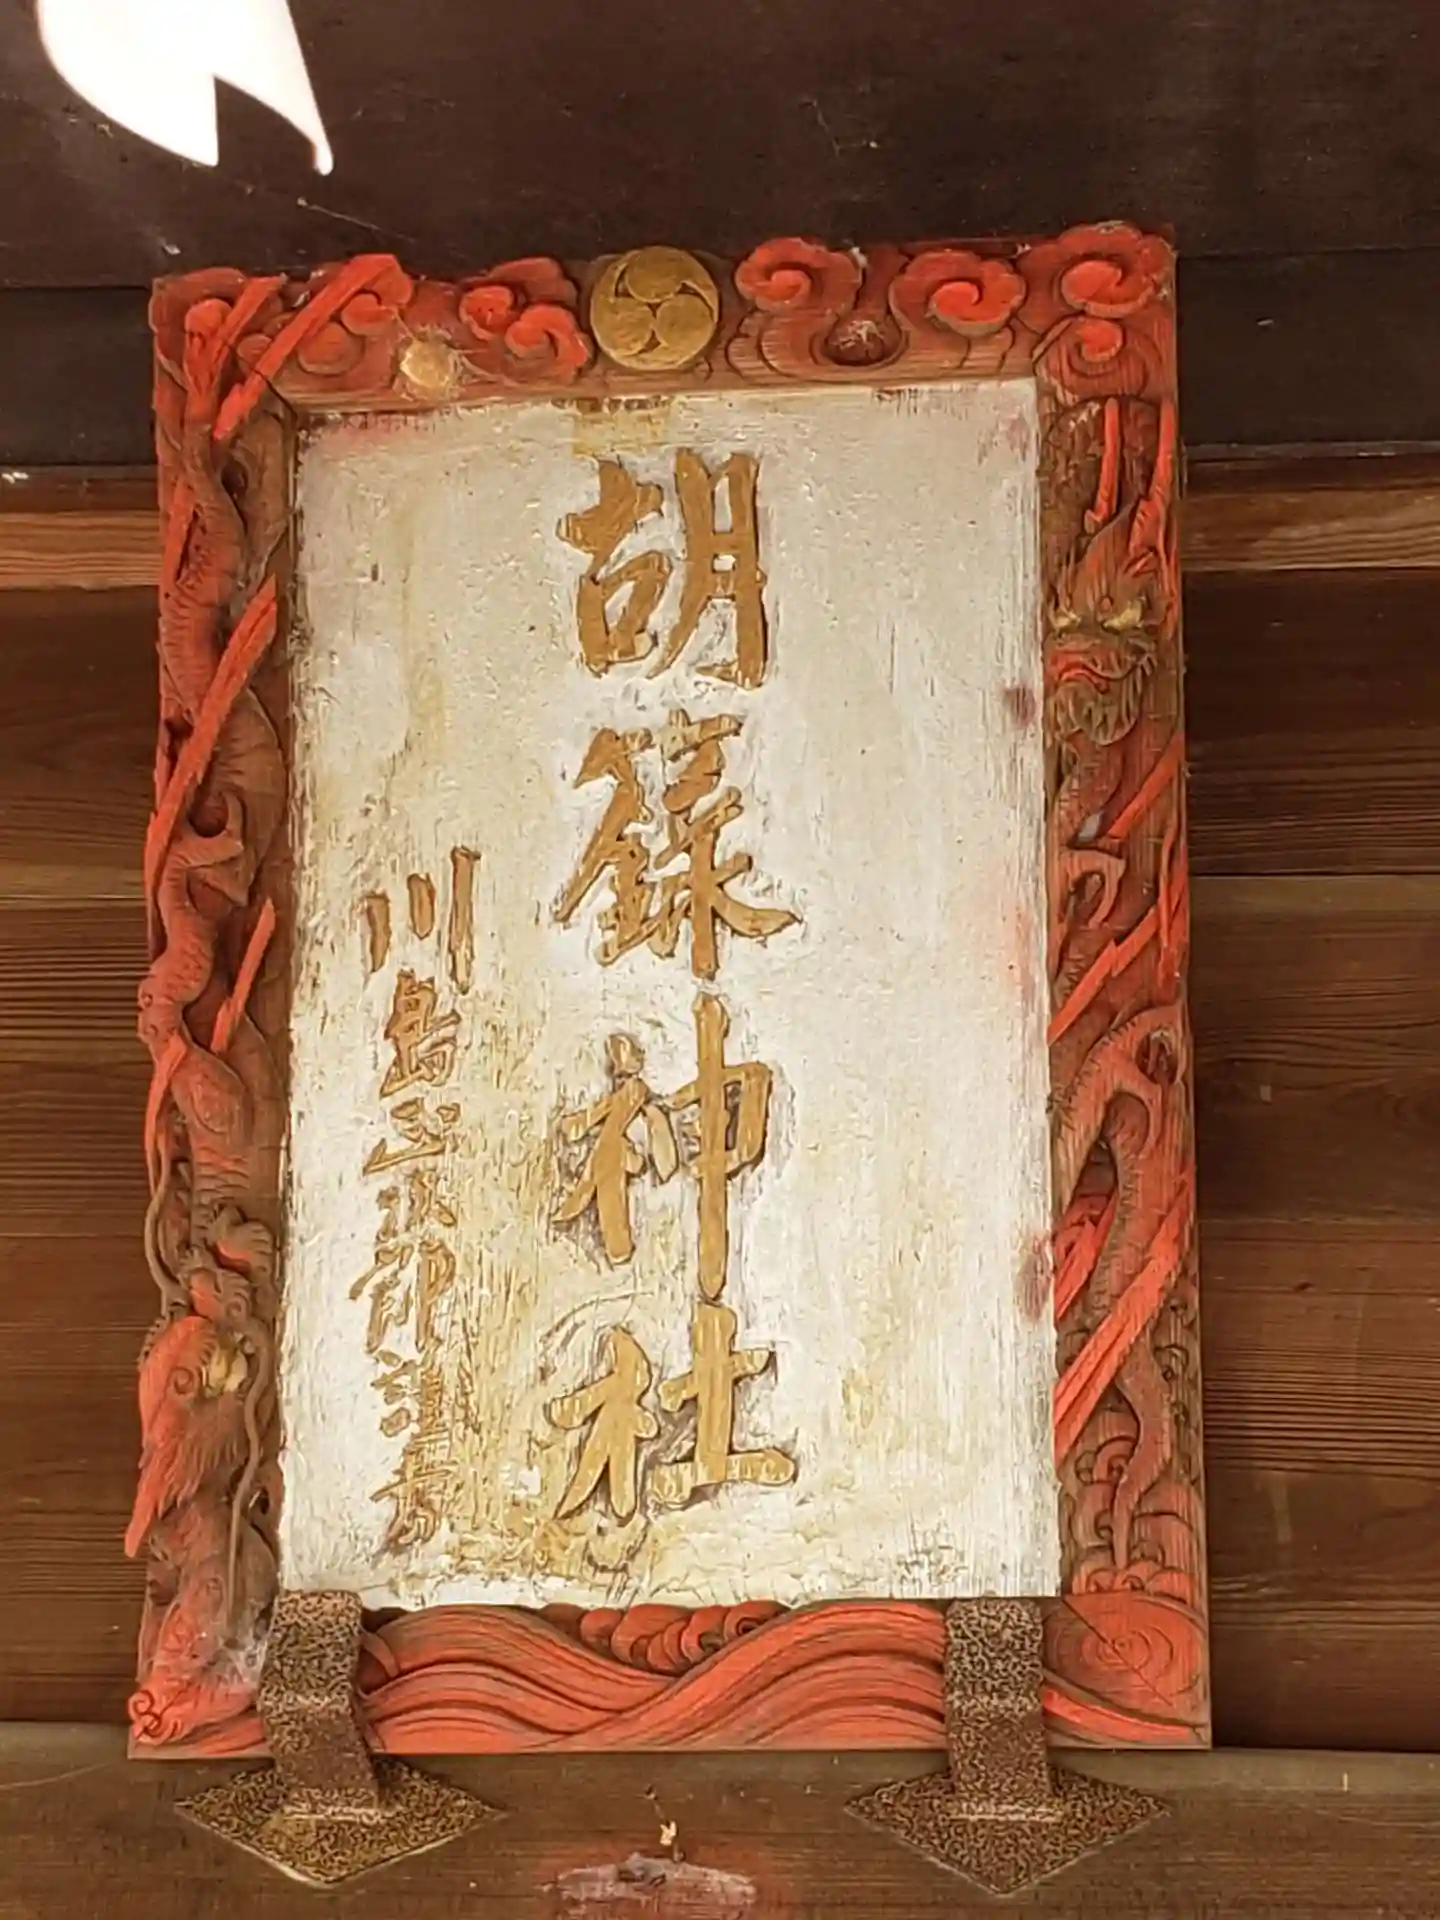 胡錄神社
川島正次郎謹書